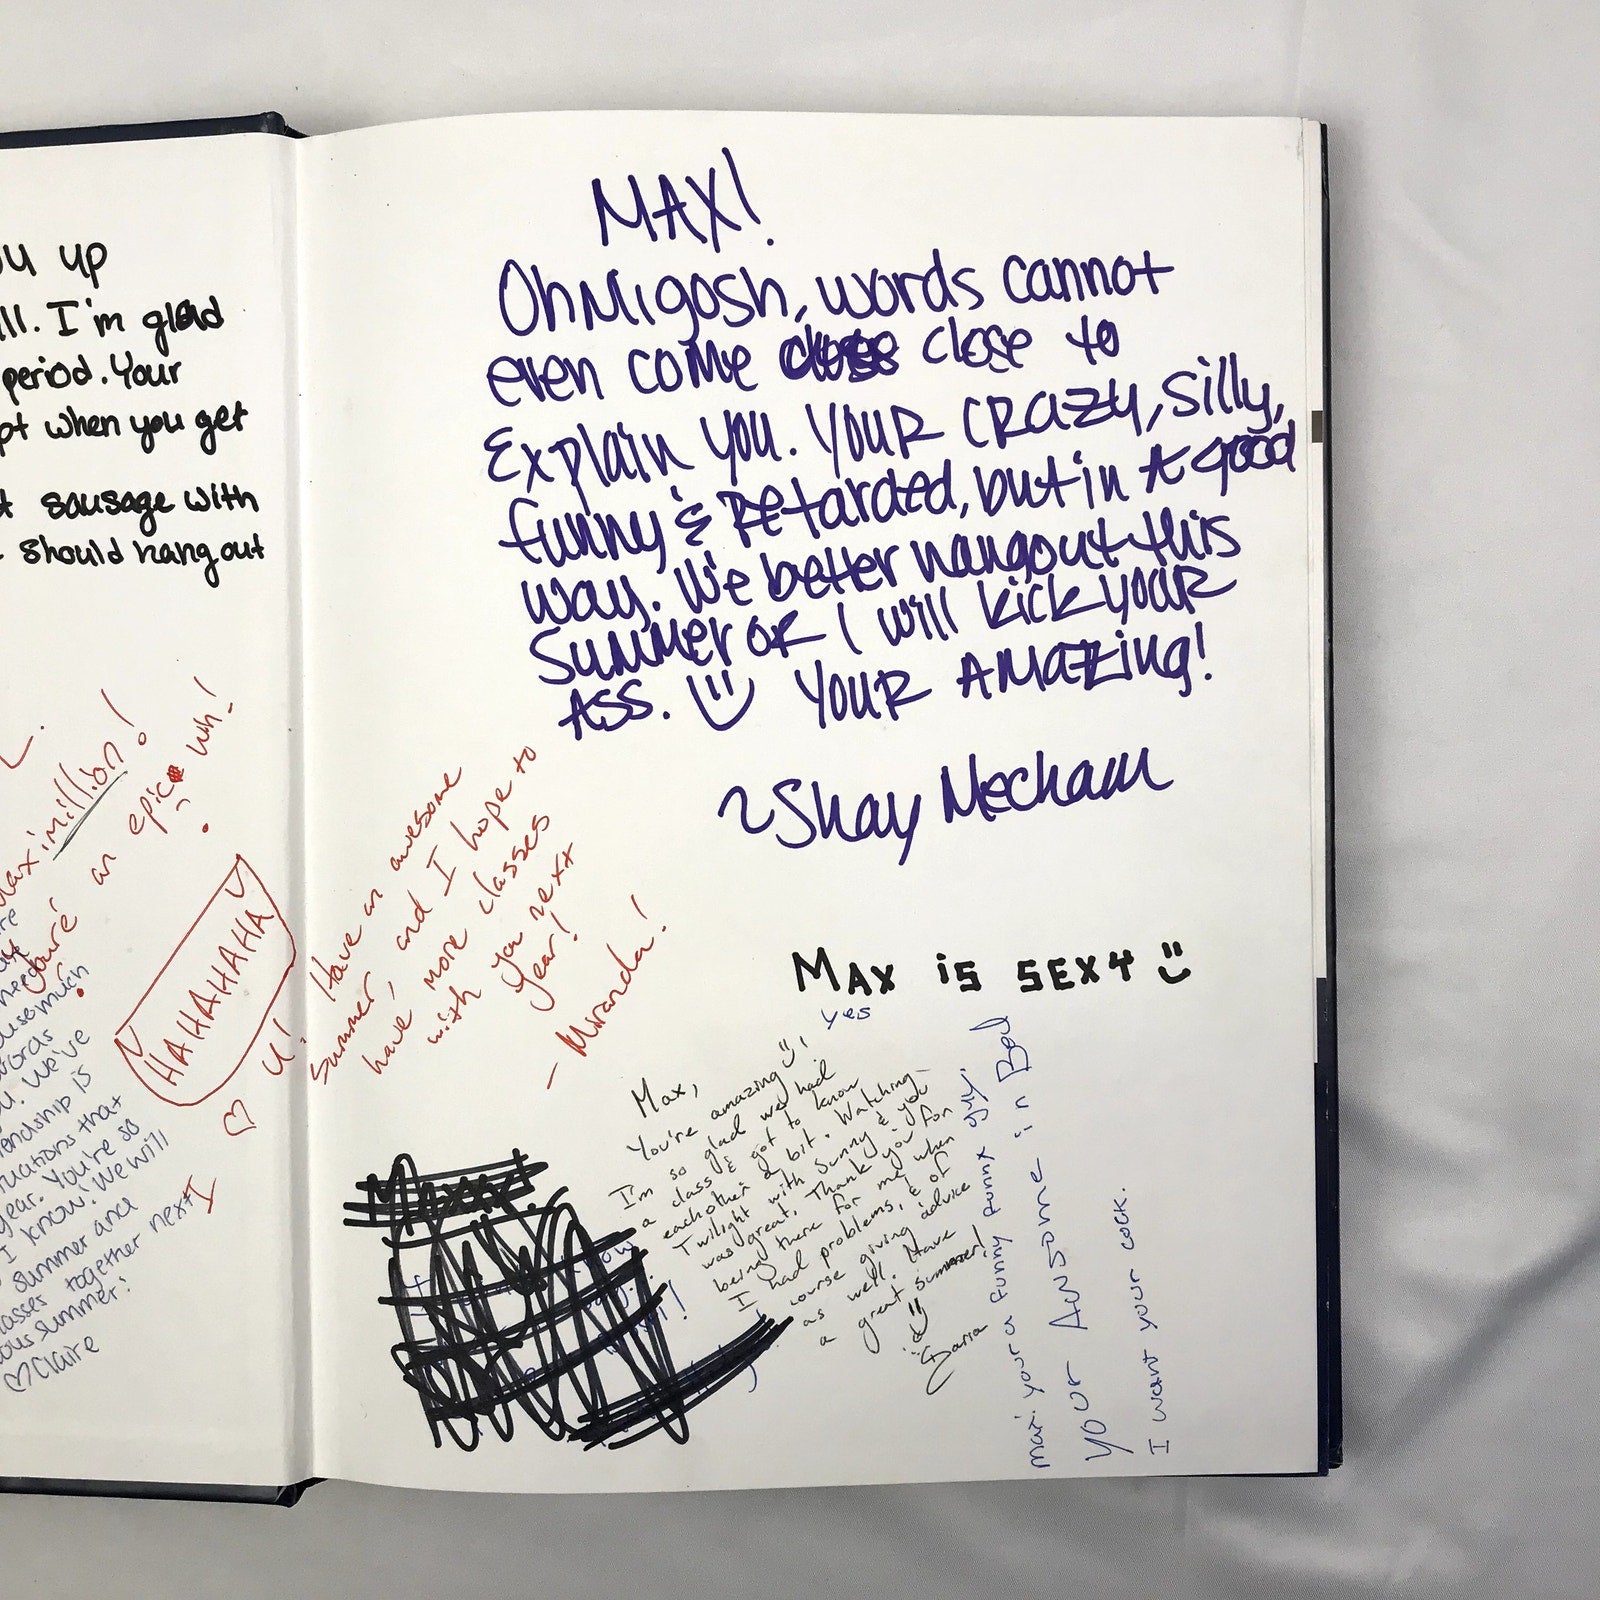 ou up
ll. I'm glad
period. Your
pt when you get
t sausage with
should hang out
L.
aximillion!
you're an epic win!
HAHAHAHAHA
need
use much
words
u. We've
endship is
tuations that
year. You're so
I know. We will
summer and
lasses together next
ous summer!
♡Claire
MAX!
OhMigosh, words cannot
even come close to
Explain you. YOUR CRAZY, silly,
funny & REtarded, but in A good
way. We better hangout this
Summer OR I will kick YOUR
Ass. YOUR AMAZZing!
~Shay Mecham
Have an awesome
summer, and I hope to
have more classes
with you next
year!
- Miranda!
MAX is SEXY
yes
Max,
You're amazing!
I'm so glad we had
a class & got to know
each other a bit. Watching
Twilight with Sunny & you
was great. Thank you for
being there for me when
I had problems, & of
course giving advice
as well. Have
a great summer!
your a funny funny guy.
your Awsome in Bed
I want your cock.